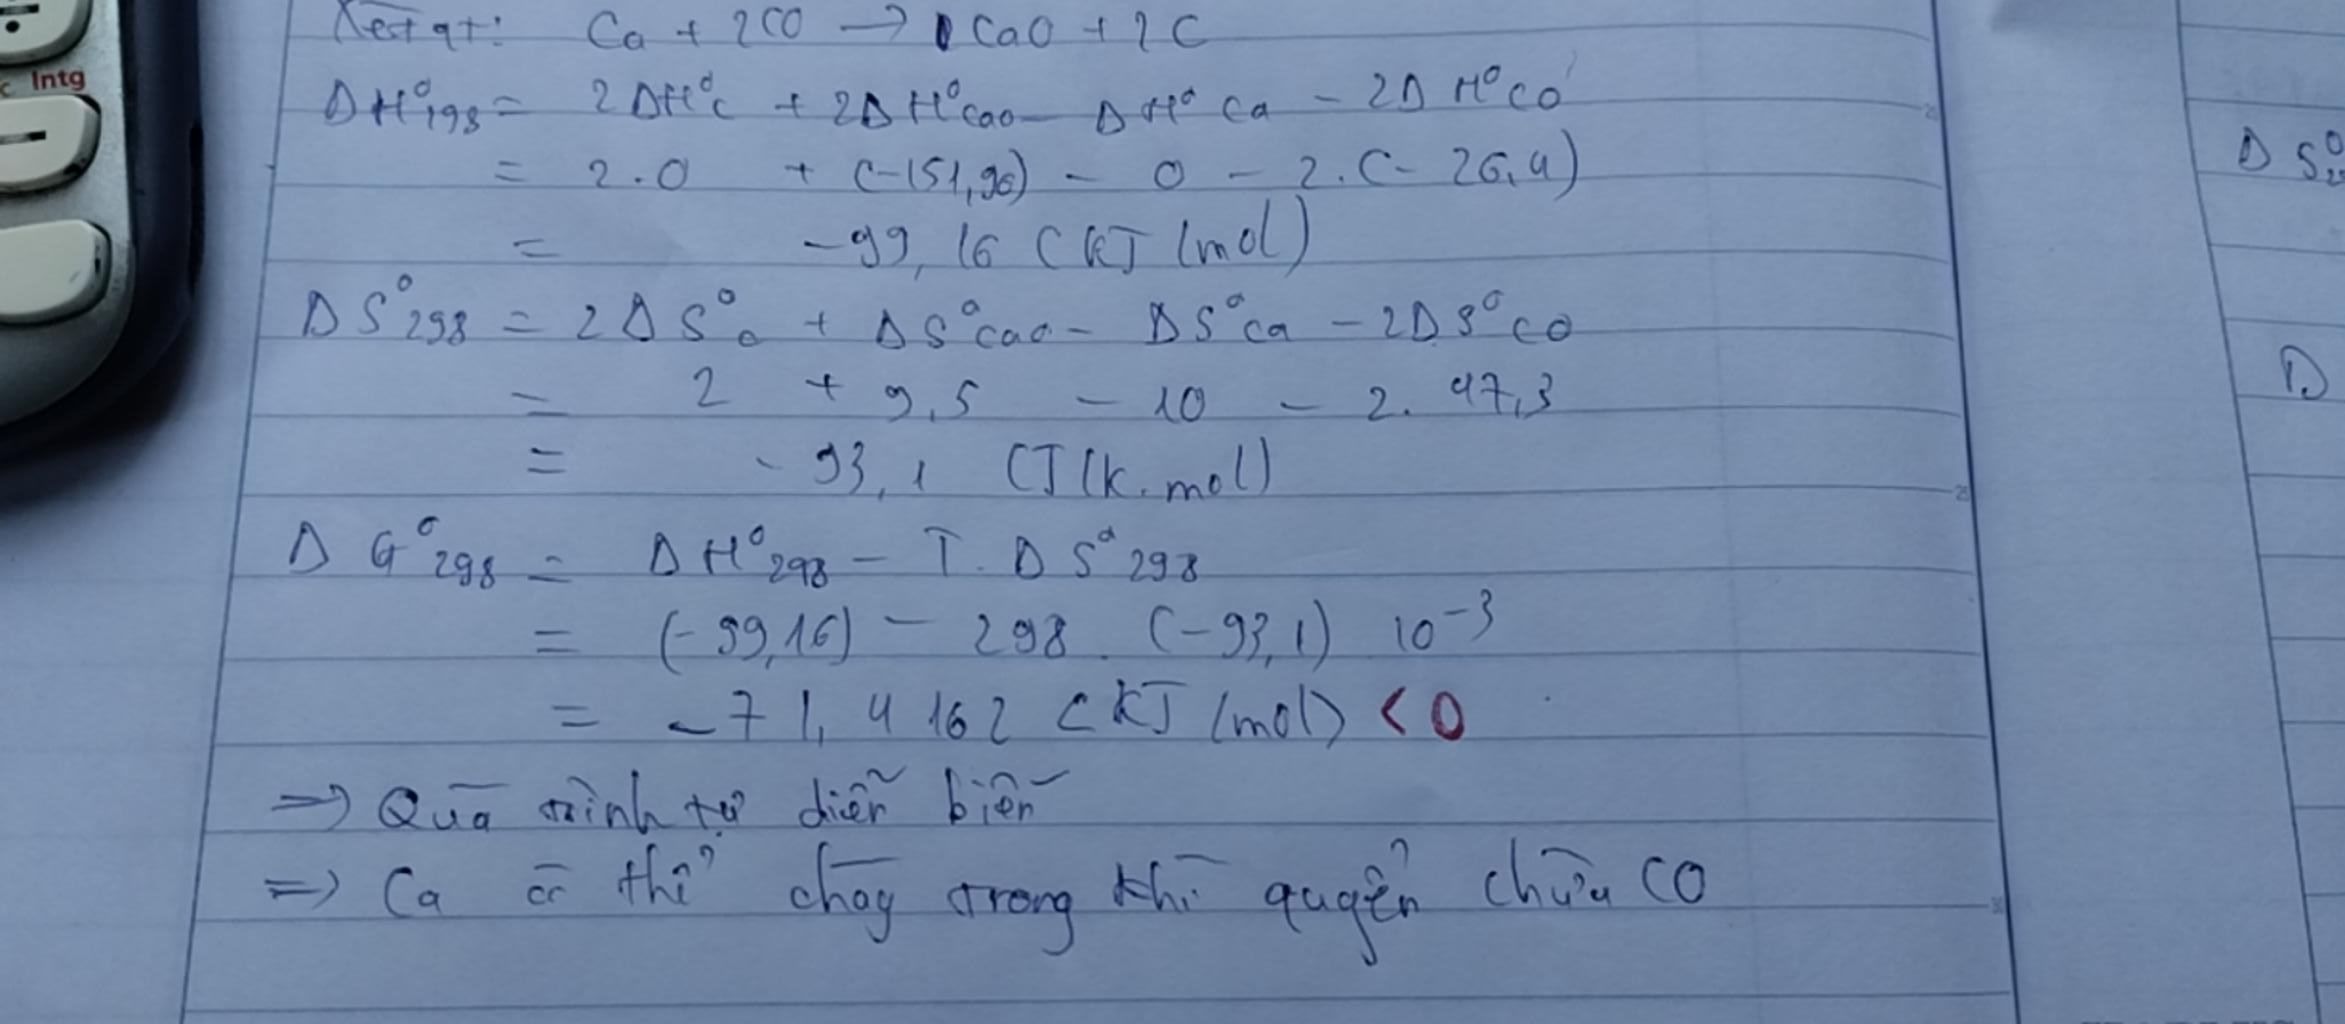 Intg
Xét pt: Ca + 2CO → CaO + 2C
ΔH°198 = 2ΔH°C + 2ΔH°CaO - ΔH°Ca - 2ΔH°CO
= 2.0 + (-151,96) - 0 - 2.(-26,4)
= -99,16 (kJ/mol)
ΔS°298 = 2ΔS°C + ΔS°CaO - ΔS°Ca - 2ΔS°CO
= 2 + 9,5 - 10 - 2. 47,3
= -93,1 (J/K.mol)
ΔG°298 = ΔH°298 - T.ΔS°298
= (-99,16) - 298. (-93,1) 10⁻³
= -71,4162 (kJ/mol) < 0
=> Quá trình tự diễn biến
=> Ca có thể cháy trong khí quyển chứa CO
ΔS°2